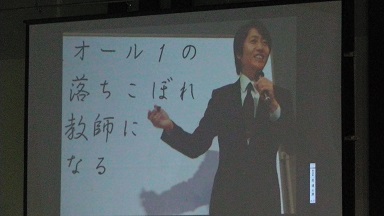 オール1の
落ちこぼれ
教師に
なる